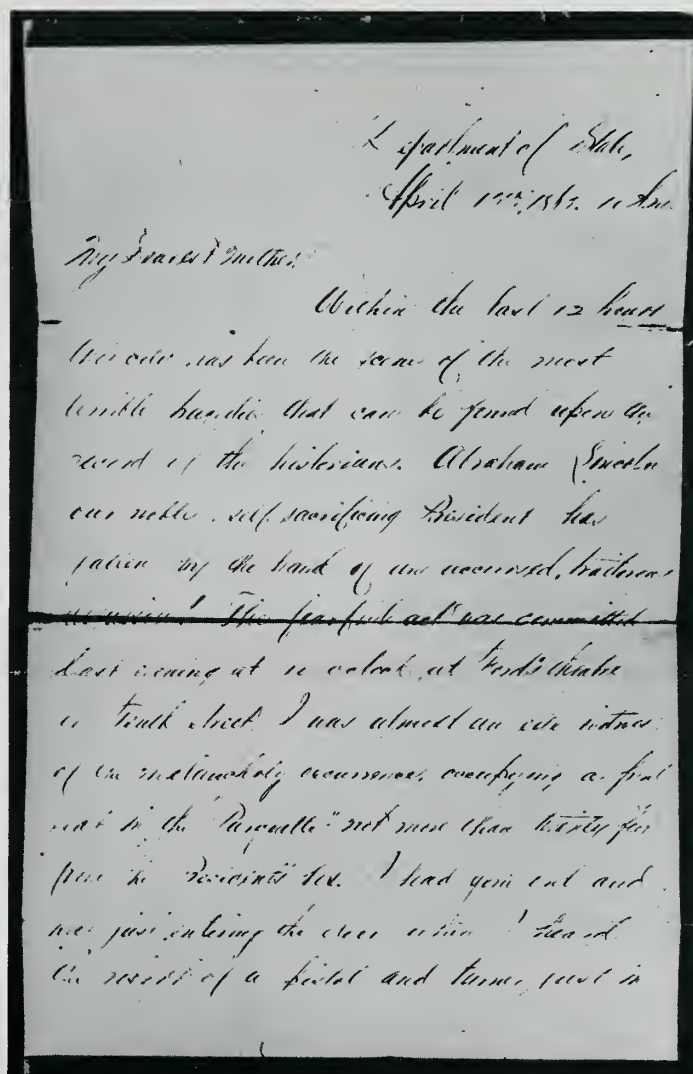 Department of State,
April 15th, 1865. 10 A.m.
My Dearest Mother:
Within the last 12 hours
this city has been the scene of the most
terrible tragedies that can be found upon the
record of the historians. Abraham Lincoln
our noble, self sacrificing President has
fallen by the hand of an accursed, traitorous
assassin! The fearful act was committed
last evening at 10 o'clock at Ford's theatre
in Tenth street. I was almost an eye witness
of the melancholy occurrence, occupying a front
seat in the "Parquette" not more than twenty feet
from the President's box. I had gone out and
was just entering the door when I heard
the report of a pistol and turned just in